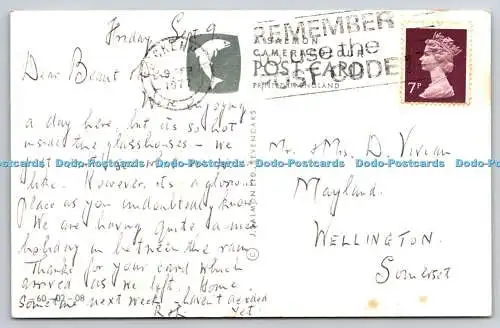 Friday Sept 9
Dear Beaut
a day here, but its so hot
inside the glasshouses - we
like. However, it's a glorious
place as you undoubtedly know
We are having quite a nice
holiday in between the rain.
Thanks for your card which
arrived as we left. Home
sometime next week - haven't decided
yet.
60-02-08
SALMON
CAMERA COLOUR
POST CARD
PRINTED IN ENGLAND
© J. SALMON LTD., SEVENOAKS
REMEMBER
use the
POSTCODE
7P
Mr. & Mrs. D. Vivian
Mayland.
WELLINGTON.
Somerset
Dodo-Postcards Dodo-Postcards Dodo-Postcards Dodo-Postcards Dodo-Postcards Dodo-Postcards